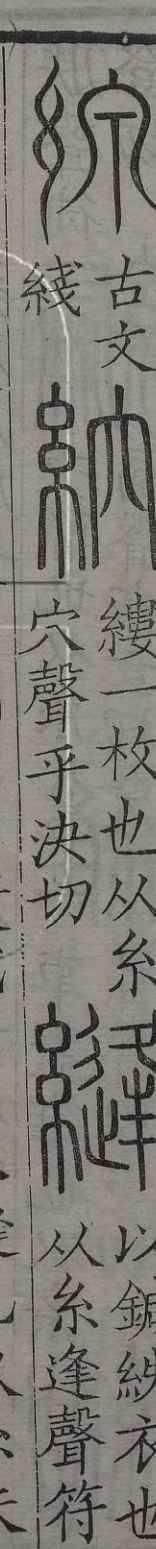 線 古文
綫
䋉 縷一枚也从糸
穴聲乎決切
縫 以鍼紩衣也
从糸逢聲符